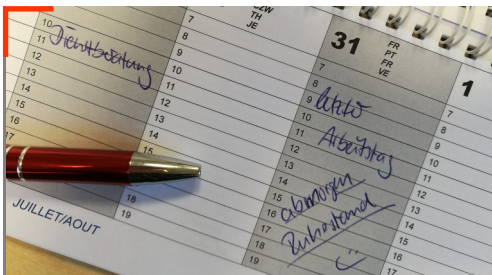 10
11
12
13
14
15
16
17
Dienstberatung
JUILLET/AOUT
ZW
TH
JE
7
8
9
10
11
12
13
14
15
18
19
31
FR
PT
FR
VE
7
8
9
10
11
12
13
14
15
16
17
18
19
letzter
Arbeitstag
abmorgen
Ruhestand
:)
1
7
8
9
10
11
12
13
14
15
16
17